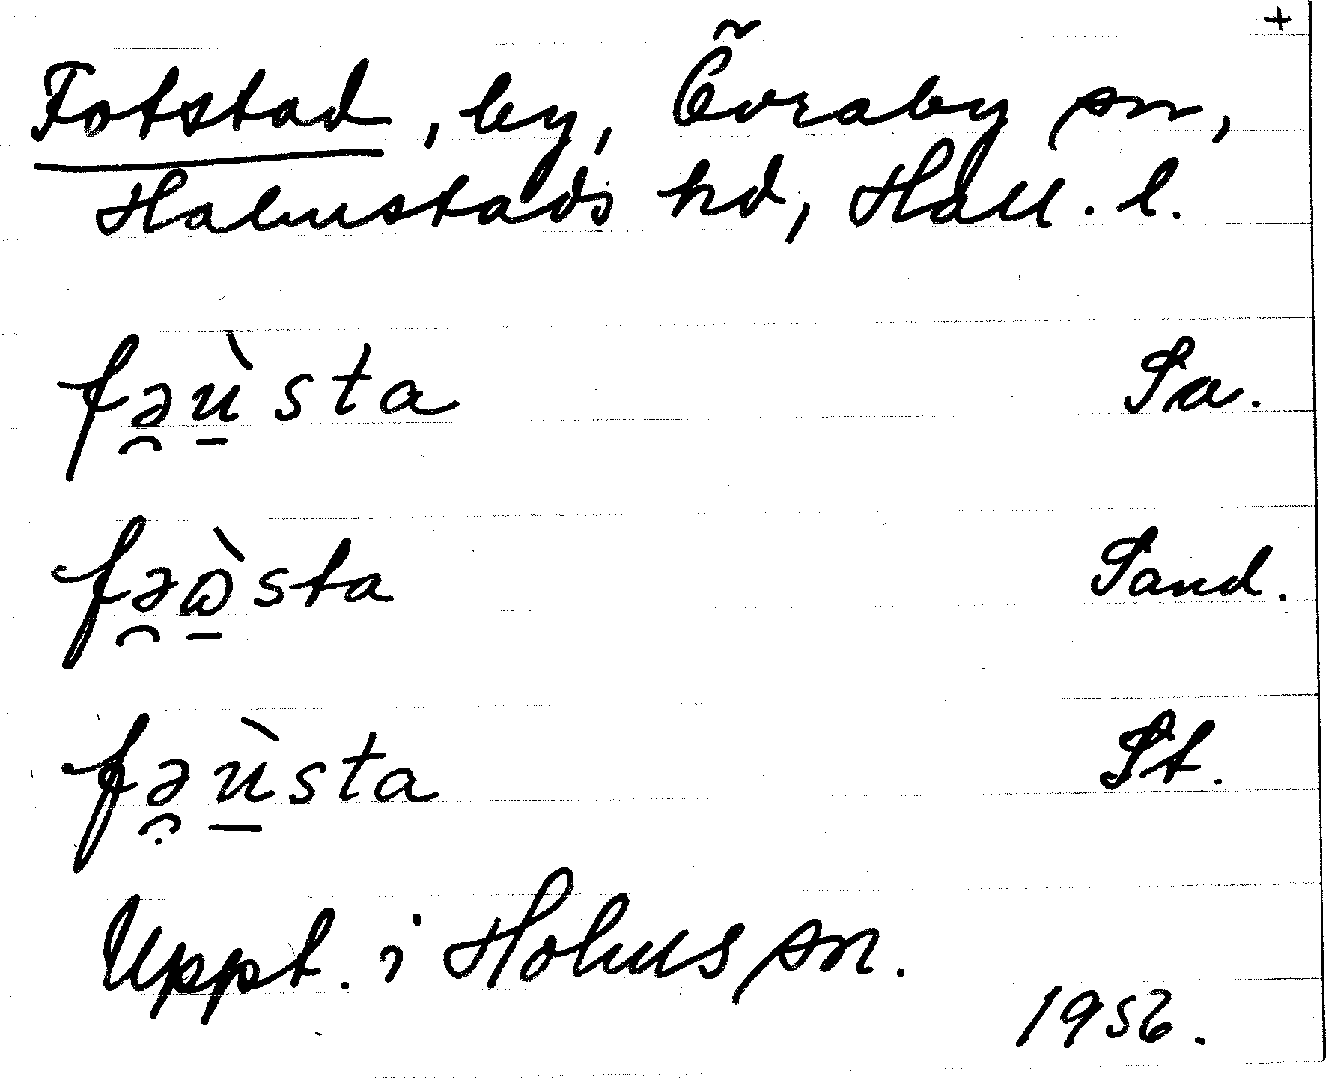 +
Fotstad, by, Övraby sn,
Halmstads hd, Hall. l.
fə̯ù̱sta Sa.
fə̯ɷ̱̀sta Sand.
fə̯̣ù̱sta St.
Uppt. i Holms sn.
1956.